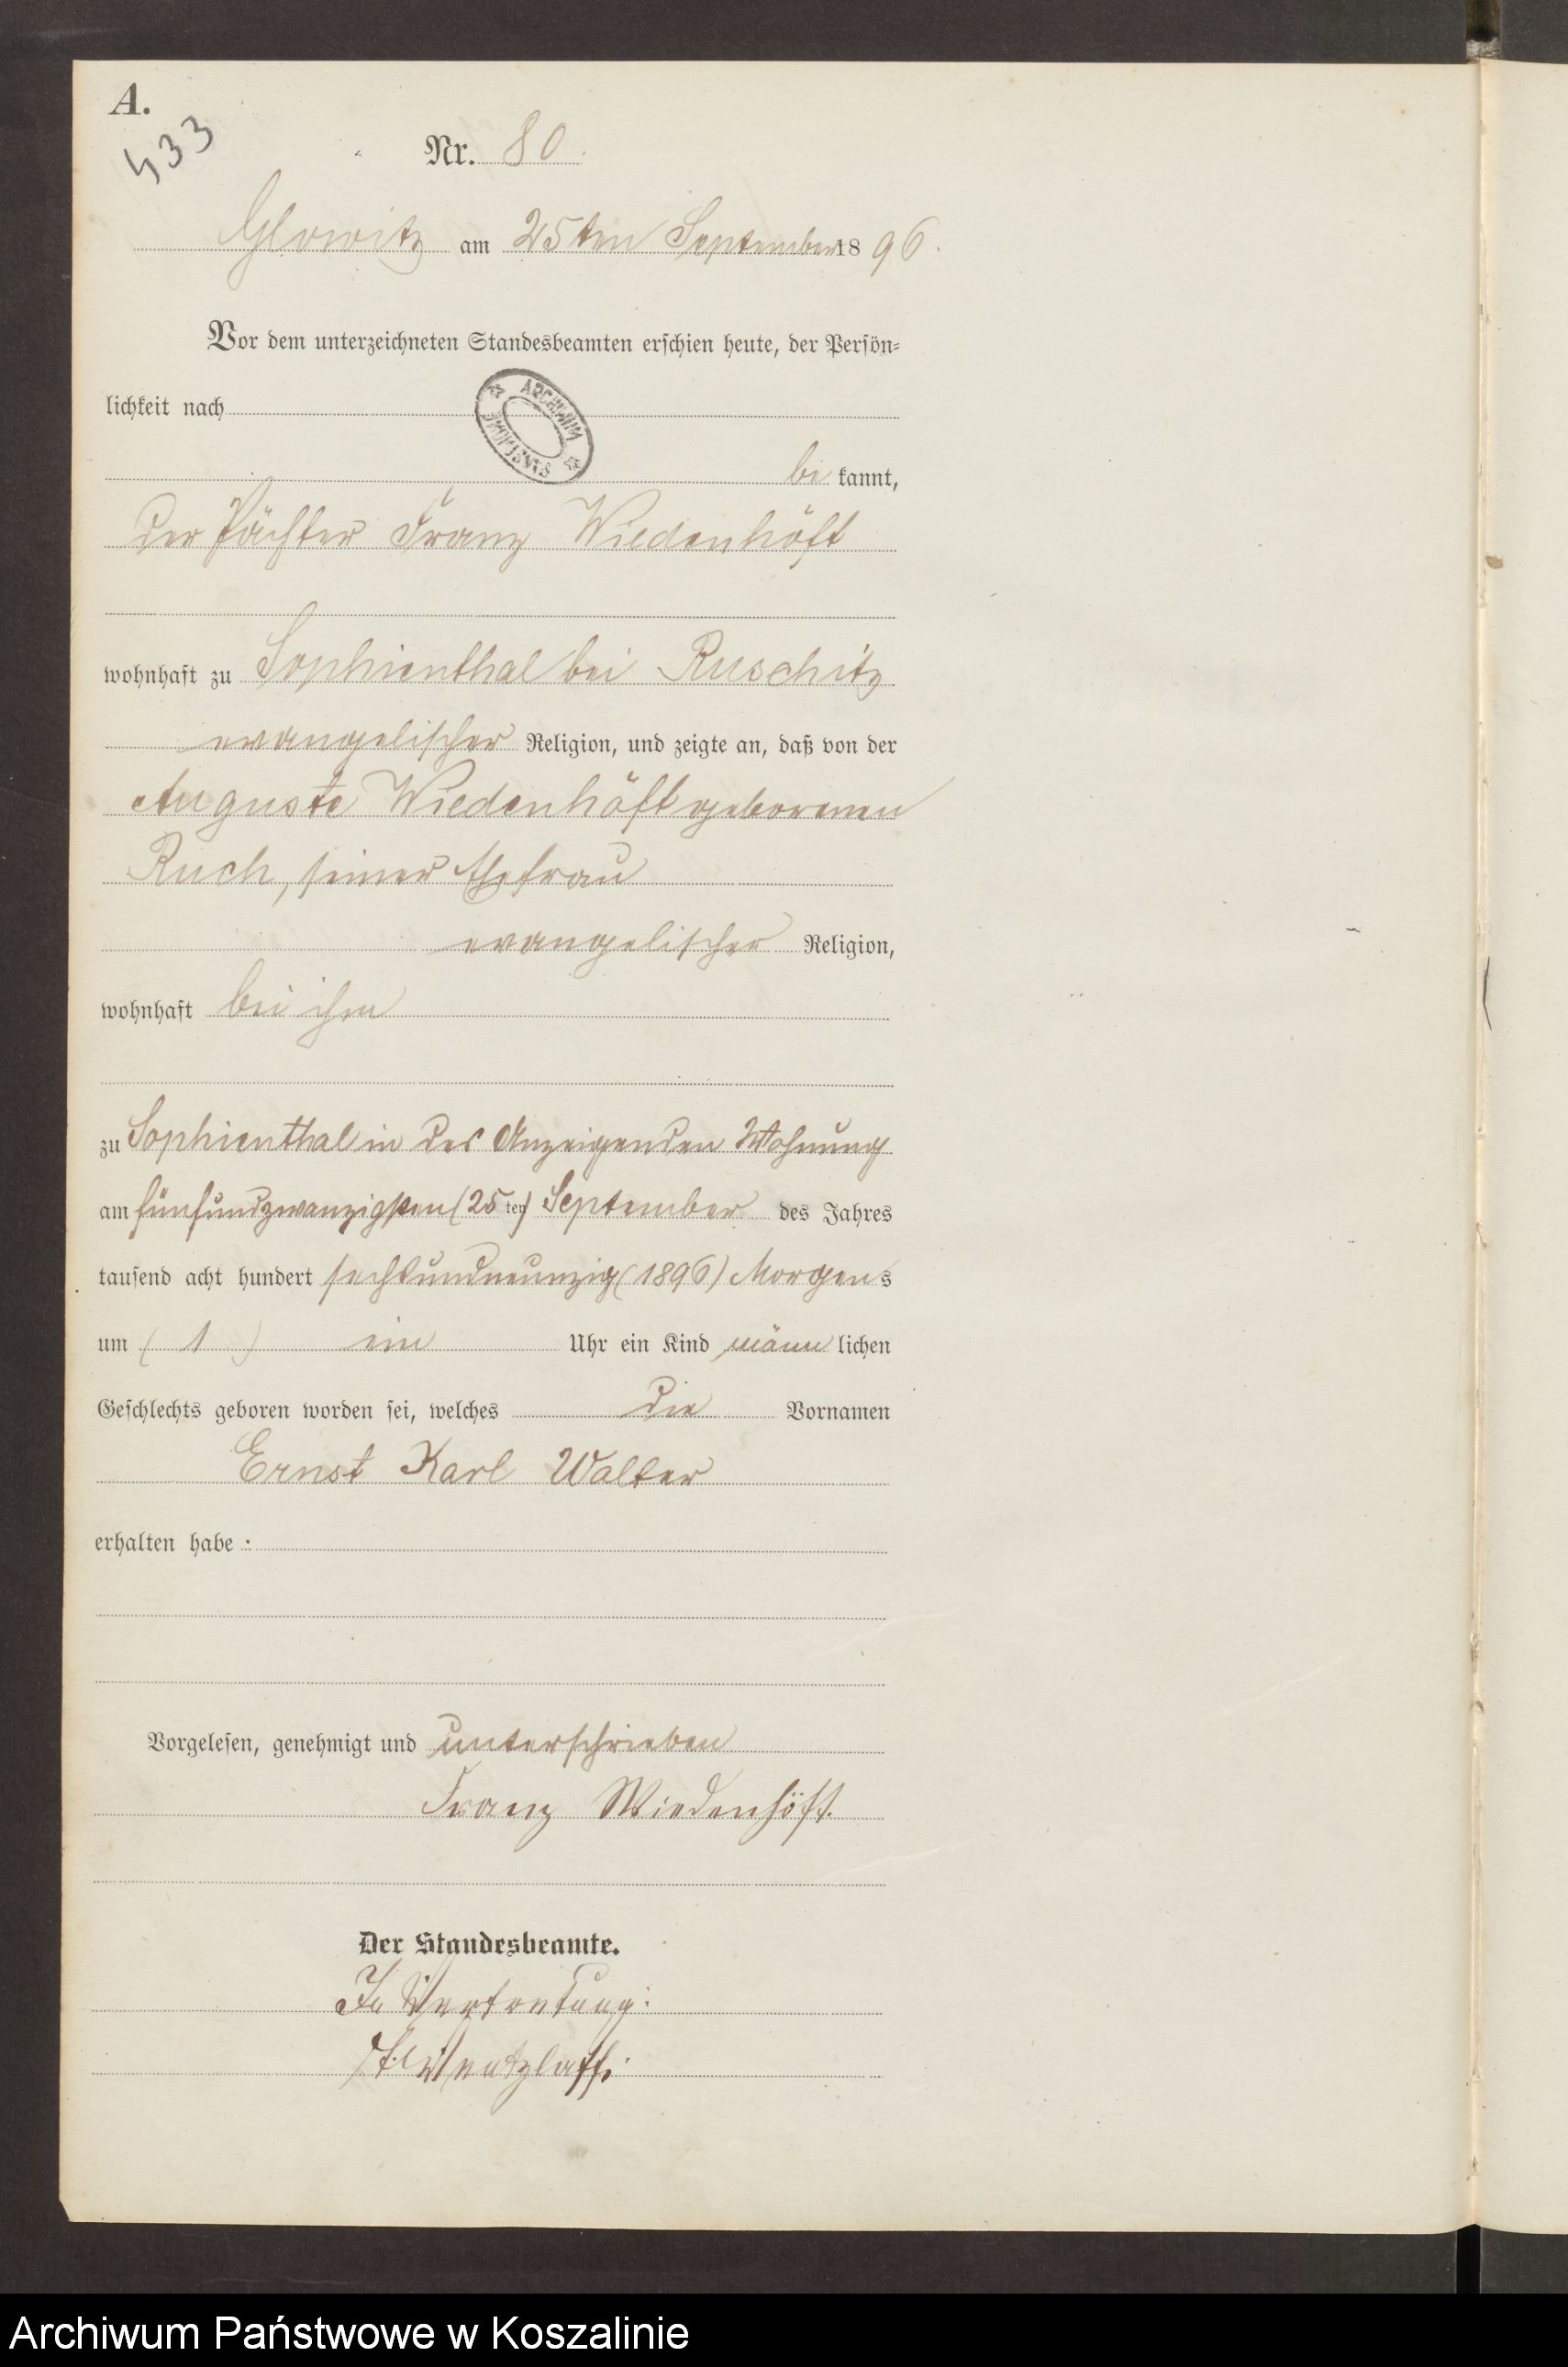 A.
433
Nr. 80.
Glowitz am 25ten September 1896.
Vor dem unterzeichneten Standesbeamten erschien heute, der Persön-
lichkeit nach
ARCHIWUM
be kannt,
der Pächter Franz Wiedenhöft
wohnhaft zu Sophienthal bei Ruschitz
evangelischer Religion, und zeigte an, daß von der
Auguste Wiedenhöft geborenen
Ruch, seiner Ehefrau
evangelischer Religion,
wohnhaft bei ihm
zu Sophienthal in des Anzeigenden Wohnung
am fünfundzwanzigsten (25ten) September des Jahres
tausend acht hundert sechsundneunzig (1896) Morgens
um (1) ein Uhr ein Kind männlichen
Geschlechts geboren worden sei, welches die Vornamen
Ernst Karl Walter
erhalten habe.
Vorgelesen, genehmigt und unterschrieben
Franz Wiedenhöft.
Der Standesbeamte.
In Vertretung:
Wentzlaff.
Archiwum Państwowe w Koszalinie